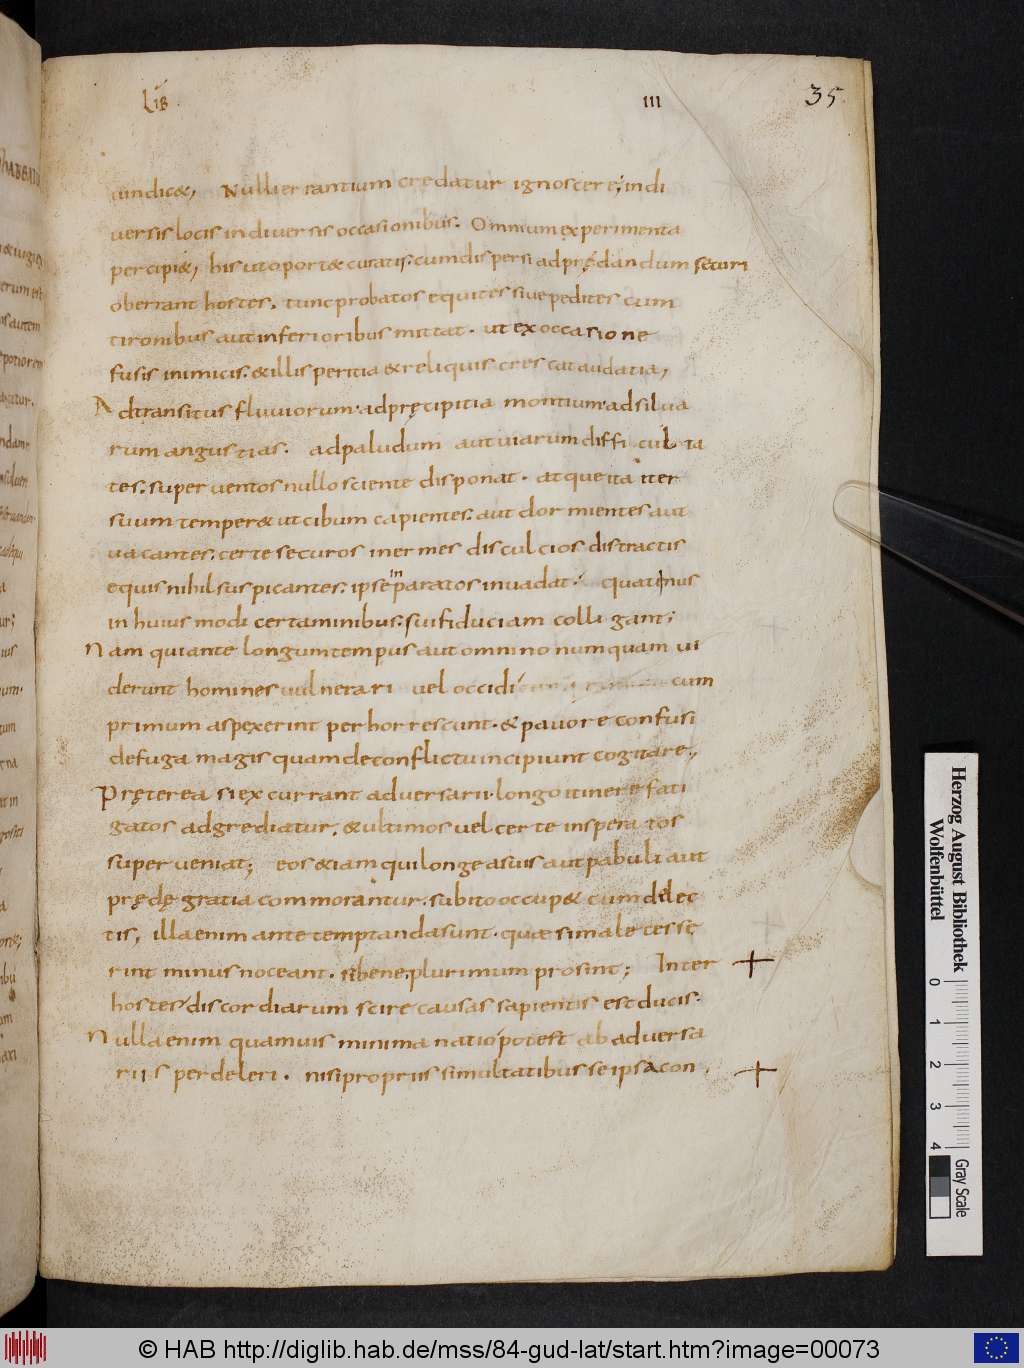 Lib III 35
uindic&, Nulli errantium credatur ignoscere; in di
uersis locis in diuersis occasionibus. Omnium experimenta
percipi&, his ut oport& curatis. cum dispersi ad prędandum securi
oberrant hostes. tunc probatos equites siue pedites cum
tironibus aut inferioribus mittat. ut ex occasione
fusis inimicis. & illis peritia & reliquis crescat audatia,
Ad transitus fluuiorum. ad pręcipitia montium. ad silua
rum angustias. ad paludum aut uiarum difficulta
tes. superuentos nullo sciente disponat. atque ita iter
suum temper& ut cibum capientes. aut dormientes aut
uacantes. certe securos inermes disculcios distractis
equis nihil suspicantes. ipse inparatos inuadat. quatinus
in huius modi certaminibus. sui fiduciam colligant;
Nam qui ante longum tempus aut omnino numquam ui
derunt homines uulnerari uel occidi cum
primum aspexerint perhorrescunt. & pauore confusi
de fuga magis quam de conflictu incipiunt cogitare.,
Pręterea si excurrant aduersarii. longo itinere fati
gatos adgrediatur. & ultimos uel certe insperatos
superueniat; eos &iam qui longe a suis aut pabuli aut
prędę gratia commorantur. subito occup& cum delec
tis, illa enim ante temptanda sunt. quæ si male cesse
rint minus noceant. si bene. plurimum prosint; Inter
hostes discordiarum scire causas sapientis est ducis.
Nulla enim quamuis minima natio potest ab aduersa
riis perdeleri. nisi propriis simultatibus se ipsa con
Herzog August Bibliothek
Wolfenbüttel
0 1 2 3 4
Gray Scale
© HAB http://diglib.hab.de/mss/84-gud-lat/start.htm?image=00073